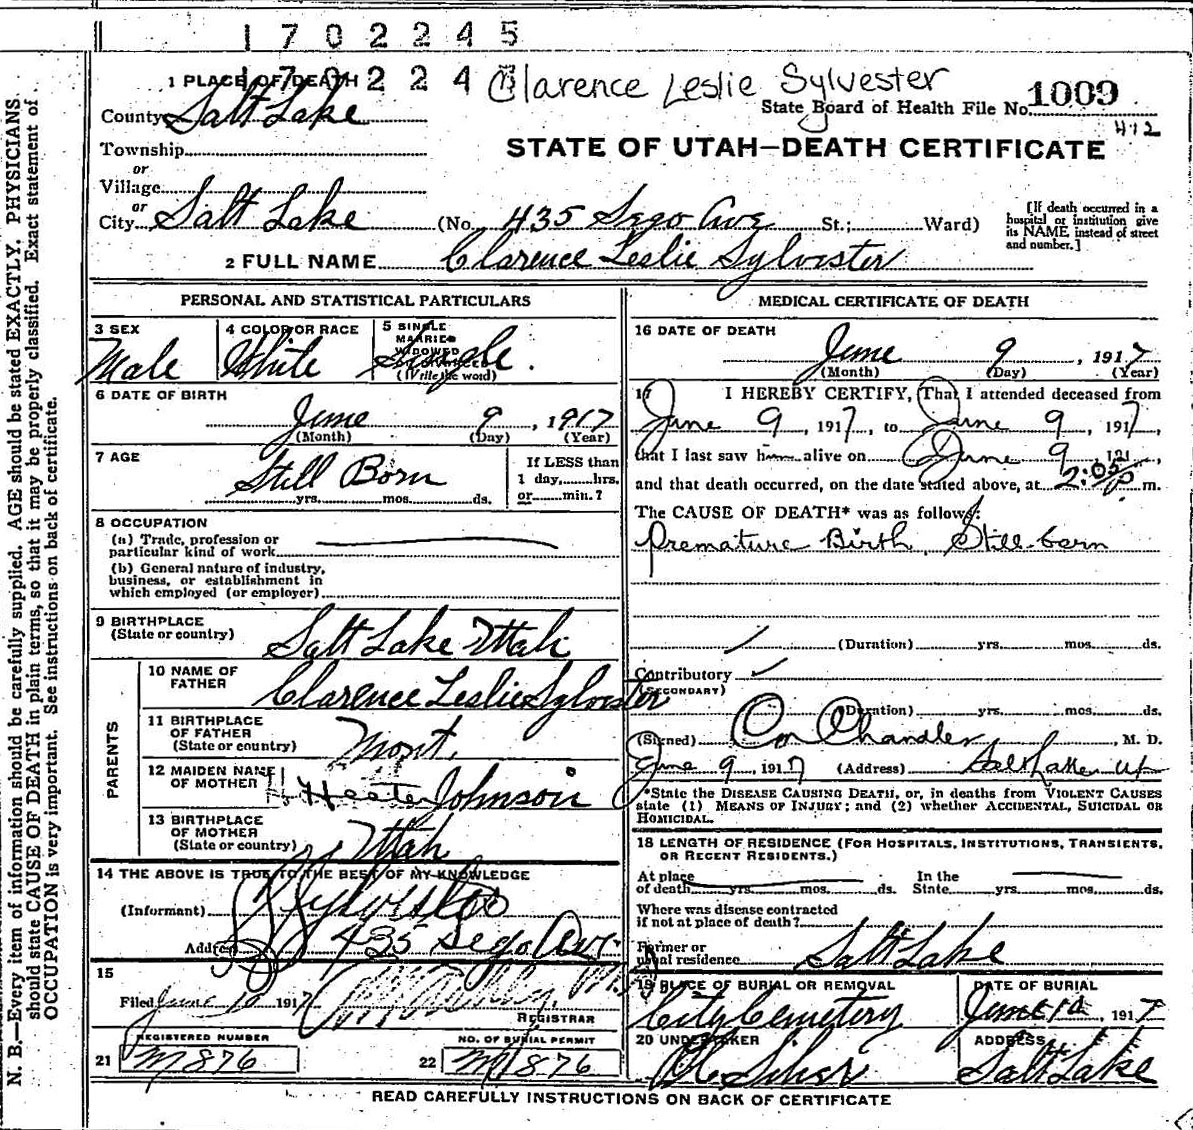 1702245
170224
Clarence Leslie Sylvester
1 PLACE OF DEATH
State Board of Health File No. 1009
412
County Salt Lake
STATE OF UTAH—DEATH CERTIFICATE
Township
or
Village
or
City Salt Lake (No. 435 Sego Ave St.; Ward)
[If death occurred in a hospital or institution give its NAME instead of street and number.]
2 FULL NAME Clarence Leslie Sylvester
PERSONAL AND STATISTICAL PARTICULARS
3 SEX Male
4 COLOR OR RACE White
5 SINGLE MARRIED WIDOWED (Write the word) Single.
6 DATE OF BIRTH
June 9, 1917
(Month) (Day) (Year)
7 AGE Still Born
yrs. mos. ds.
If LESS than 1 day, hrs. or min.?
8 OCCUPATION
(a) Trade, profession or particular kind of work
(b) General nature of industry, business, or establishment in which employed (or employer)
9 BIRTHPLACE (State or country) Salt Lake Utah
PARENTS
10 NAME OF FATHER Clarence Leslie Sylvester
11 BIRTHPLACE OF FATHER (State or country) Mont.
12 MAIDEN NAME OF MOTHER Hester Johnson
13 BIRTHPLACE OF MOTHER (State or country) Utah
14 THE ABOVE IS TRUE TO THE BEST OF MY KNOWLEDGE
(Informant) Sylvester
Address 435 Sego Ave.
15
Filed June 10 1917
REGISTRAR
REGISTERED NUMBER
21 M876
NO. OF BURIAL PERMIT
22 M876
MEDICAL CERTIFICATE OF DEATH
16 DATE OF DEATH
June 9, 1917
(Month) (Day) (Year)
17 I HEREBY CERTIFY, That I attended deceased from
June 9, 1917, to June 9, 1917,
that I last saw him alive on June 9, 191,
and that death occurred, on the date stated above, at 2:05 p m.
The CAUSE OF DEATH* was as follows:
Premature Birth, Still-born
(Duration) yrs. mos. ds.
Contributory
(SECONDARY)
(Duration) yrs. mos. ds.
(Signed) Chandler, M. D.
June 9 1917 (Address) Salt Lake
*State the DISEASE CAUSING DEATH, or, in deaths from VIOLENT CAUSES
state (1) MEANS OF INJURY; and (2) whether ACCIDENTAL, SUICIDAL OR
HOMICIDAL.
18 LENGTH OF RESIDENCE (FOR HOSPITALS, INSTITUTIONS, TRANSIENTS,
OR RECENT RESIDENTS.)
At place of death yrs. mos. ds. In the State yrs. mos. ds.
Where was disease contracted
if not at place of death?
Former or
usual residence Salt Lake
19 PLACE OF BURIAL OR REMOVAL City Cemetery
DATE OF BURIAL June 10, 1917
20 UNDERTAKER
ADDRESS Salt Lake
READ CAREFULLY INSTRUCTIONS ON BACK OF CERTIFICATE
N. B.—Every item of information should be carefully supplied. AGE should be stated EXACTLY. PHYSICIANS
should state CAUSE OF DEATH in plain terms, so that it may be properly classified. Exact statement of
OCCUPATION is very important. See instructions on back of certificate.